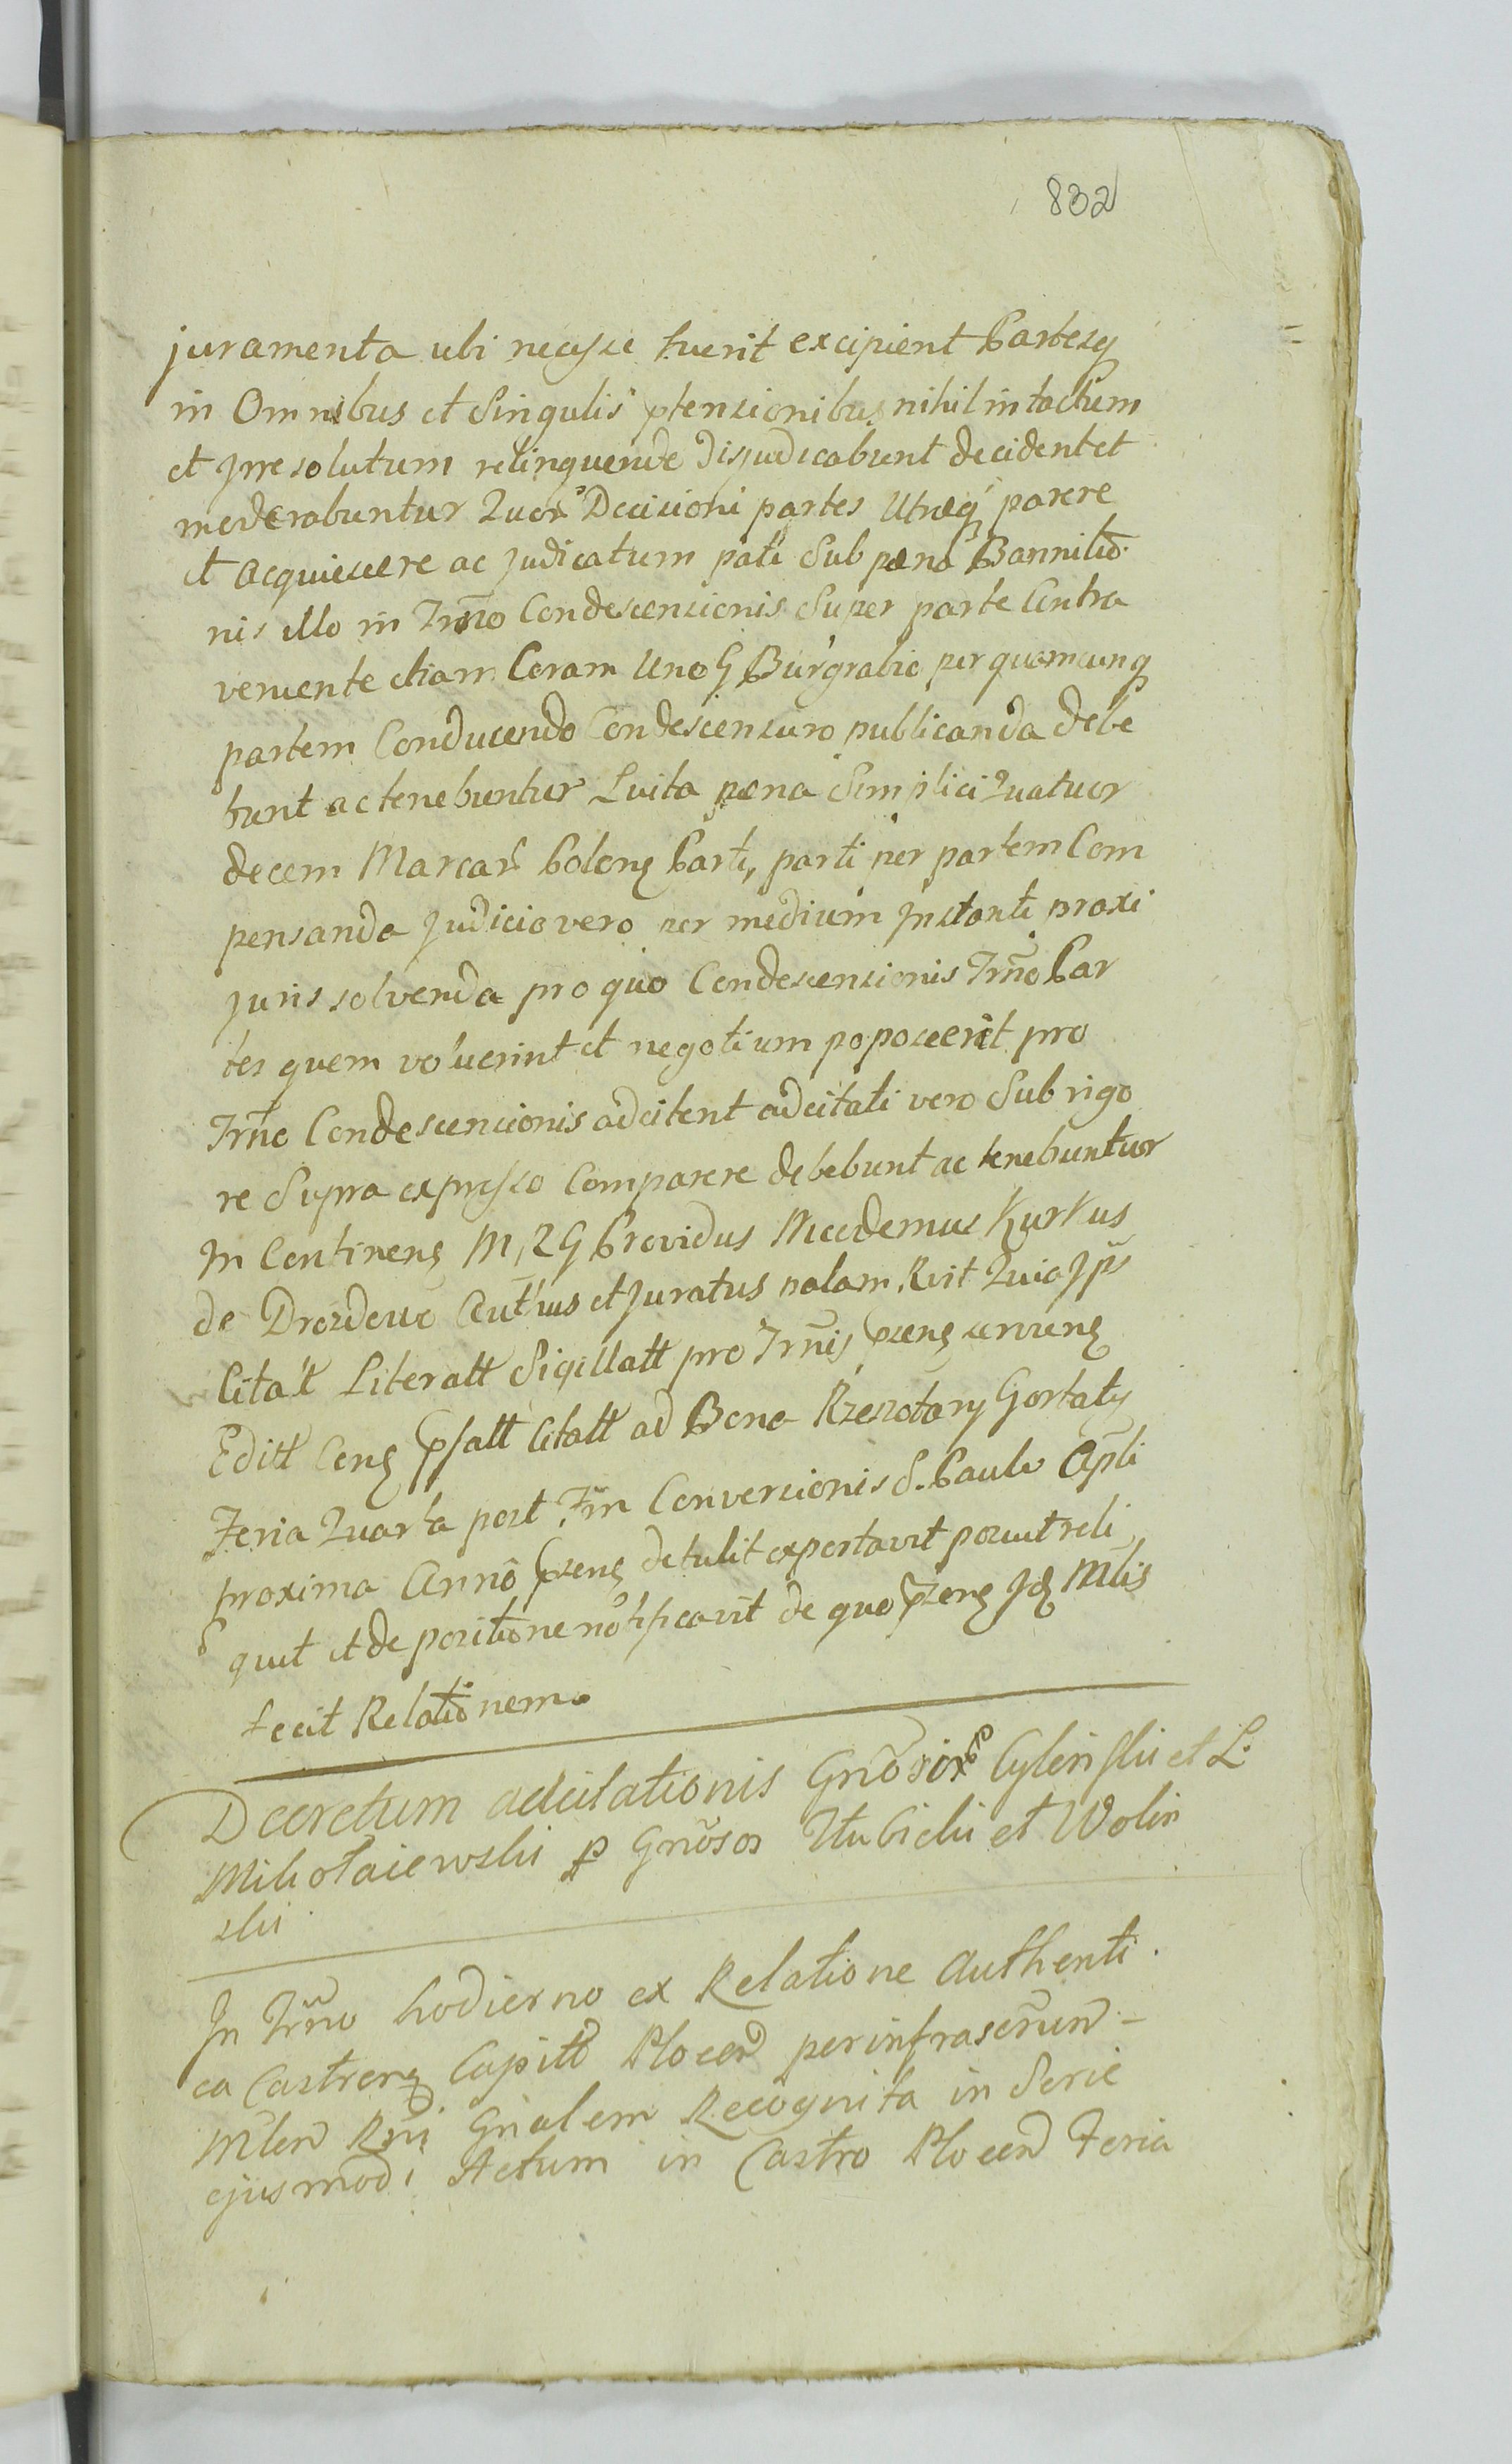 832
juramenta ubi necesse fuerit excipient Partesq
in Omnibus et Singulis ptensionibus nihil intactum
et jrresolutum relinquende disjudicabunt decident et
moderabuntur Quor Decisioni partes Utraeq parere
et acquiescere ac judicatum pati Sub paena Bannitio
nis illo in Trno Condescensionis Super parte Contra
veniente etiam Coram Uno G Burgrabio per quamcunq
partem Conducendo Condescensuro publicanda debe
bunt ac tenebuntur Luita paena Simplici Quatuor
decem Marcar Polong Parti, parti per partem Com
pensanda Judicio vero per medium Jnstanti proxi
juris solvenda pro quo Condescensionis Trno Par
tes quem voluerint et negotium poposcerit pro
Trno Condescensionis adcitent adcitati vero Sub rigo
re Supra expresso Comparere debebunt ac tenebuntur
In Continen M, 2 G Providus Nicodemus Kurkus
de Drozdowo Authus et Juratus palam Rvit Quia Jps
Citatt Literatt Sigillatt pro Trnis psens servien
Editt Cons psatt Citatt ad Bona Rzeszotary Gortaty
Feria Quarta post Fm Conversionis S. Pauli Apli
proxima Anno psens detulit exportavit posuit reli
quit et de positione notificavit de quo psens Jd Mlis
fecit Relationem
Decretum adcitationis Gnosor Cylenski et L.
Mikołaiewski p Gnosos Zlubicki et Wolin
ski
In Trno hodierno ex Relatione Authenti
ca Castren Capitt Plocen per infrascrum
Mlem Rni Gnalem Recognita in Serie
ejusmodi Actum in Castro Plocen Feria